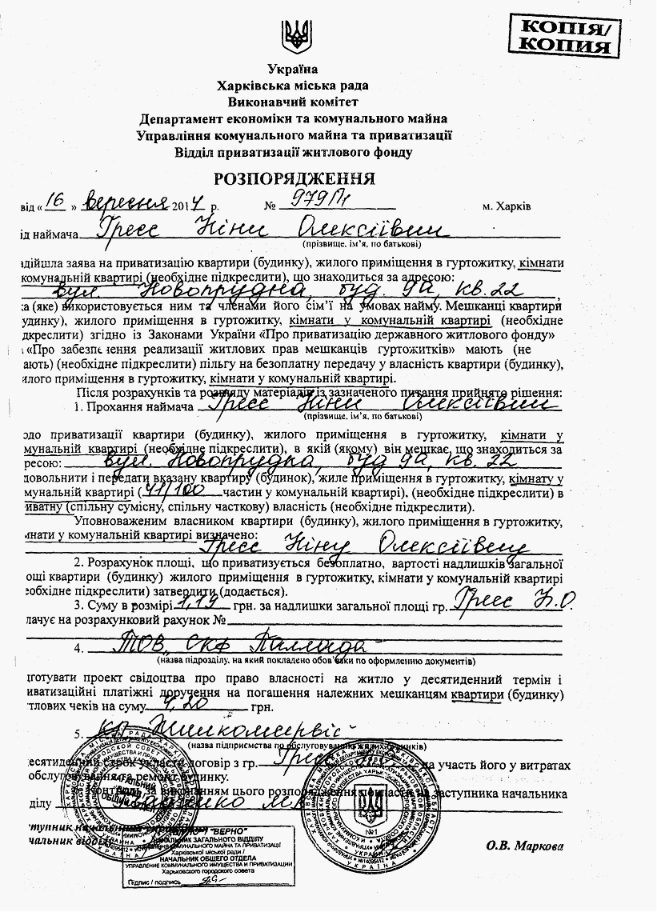 КОПІЯ/
КОПИЯ
Україна
Харківська міська рада
Виконавчий комітет
Департамент економіки та комунального майна
Управління комунального майна та приватизації
Відділ приватизації житлового фонду
РОЗПОРЯДЖЕННЯ
від « 16 » вересня 2014 р. № 979П1 м. Харків
ід наймача Гресс Ніни Олексіївни
(прізвище, ім'я, по батькові)
адійшла заява на приватизацію квартири (будинку), жилого приміщення в гуртожитку, кімнати
комунальній квартирі (необхідне підкреслити), що знаходиться за адресою:
вул. Новопрудна, буд. 9а, кв. 22
ка (яке) використовується ним та членами його сім'ї на умовах найму. Мешканці квартири
удинку), жилого приміщення в гуртожитку, кімнати у комунальній квартирі (необхідне
дкреслити) згідно із Законами України «Про приватизацію державного житлового фонду»
«Про забезпечення реалізації житлових прав мешканців гуртожитків» мають (не
ають) (необхідне підкреслити) пільгу на безоплатну передачу у власність квартири (будинку),
илого приміщення в гуртожитку, кімнати у комунальній квартирі.
Після розрахунків та розгляду матеріалів із зазначеного питання прийнято рішення:
1. Прохання наймача Гресс Ніни Олексіївни
(прізвище, ім'я, по батькові)
одо приватизації квартири (будинку), жилого приміщення в гуртожитку, кімнати у
мунальній квартирі (необхідне підкреслити), в якій (якому) він мешкає, що знаходиться за
ресою: вул. Новопрудна, буд 9а, кв. 22
довольнити і передати вказану квартиру (будинок), жиле приміщення в гуртожитку, кімнату у
мунальній квартирі (41/100 частин у комунальній квартирі), (необхідне підкреслити) в
иватну (спільну сумісну, спільну часткову) власність (необхідне підкреслити).
Уповноваженим власником квартири (будинку), жилого приміщення в гуртожитку,
мнати у комунальній квартирі визначено:
Гресс Ніну Олексіївну
2. Розрахунок площі, що приватизується безоплатно, вартості надлишків загальної
ощі квартири (будинку) жилого приміщення в гуртожитку, кімнати у комунальній квартирі
еобхідне підкреслити) затвердити (додається).
3. Суму в розмірі 1,19 грн. за надлишки загальної площі гр. Гресс Н.О.
лачує на розрахунковий рахунок №
4. ТОВ „СКФ Паллада"
(назва підрозділу, на який покладено обов'язки по оформленню документів)
дготувати проект свідоцтва про право власності на житло у десятиденний термін і
иватизаційні платіжні доручення на погашення належних мешканцям квартири (будинку)
тлових чеків на суму 4,20 грн.
5. КП Жилкомсервіс
(назва підприємства по обслуговуванню жилих будинків)
есятиденний строк укласти договір з гр. Гресс Н.О. на участь його у витратах
обслуговування та ремонт будинку.
Контроль за виконанням цього розпорядження покласти на заступника начальника
ділу
тупник начальника
чальник відділу
О.В. Маркова
"ВЕРНО"
НАЧАЛЬНИК ЗАГАЛЬНОГО ВІДДІЛУ
УПРАВЛІННЯ КОМУНАЛЬНОГО МАЙНА ТА ПРИВАТИЗАЦІЇ
Харківської міської ради /
НАЧАЛЬНИК ОБЩЕГО ОТДЕЛА
УПРАВЛЕНИЕ КОММУНАЛЬНОГО ИМУЩЕСТВА И ПРИВАТИЗАЦИИ
Харьковского городского совета
Підпис / подпись
№1